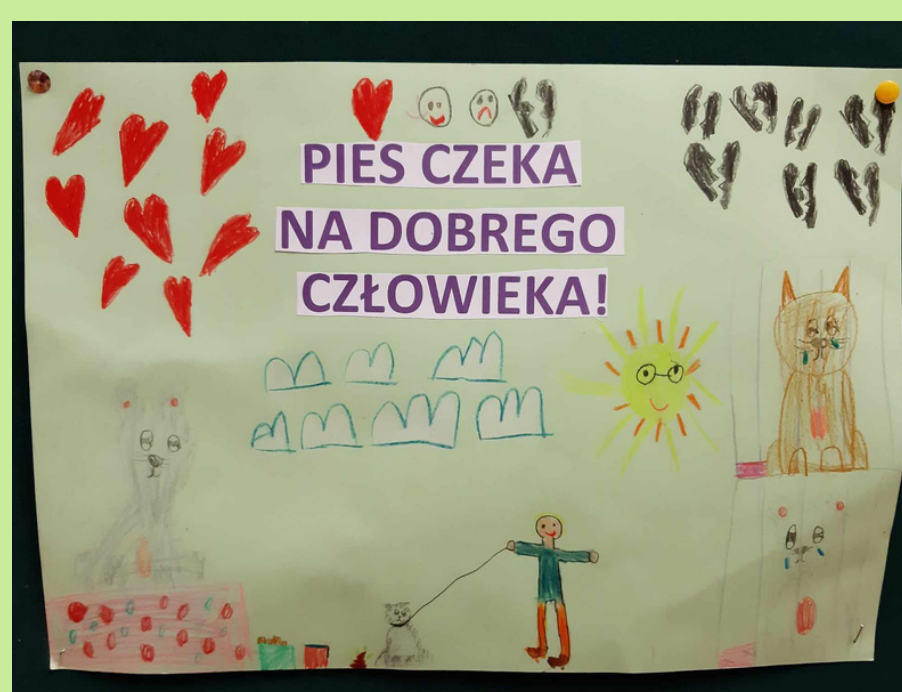 PIES CZEKA
NA DOBREGO
CZŁOWIEKA!